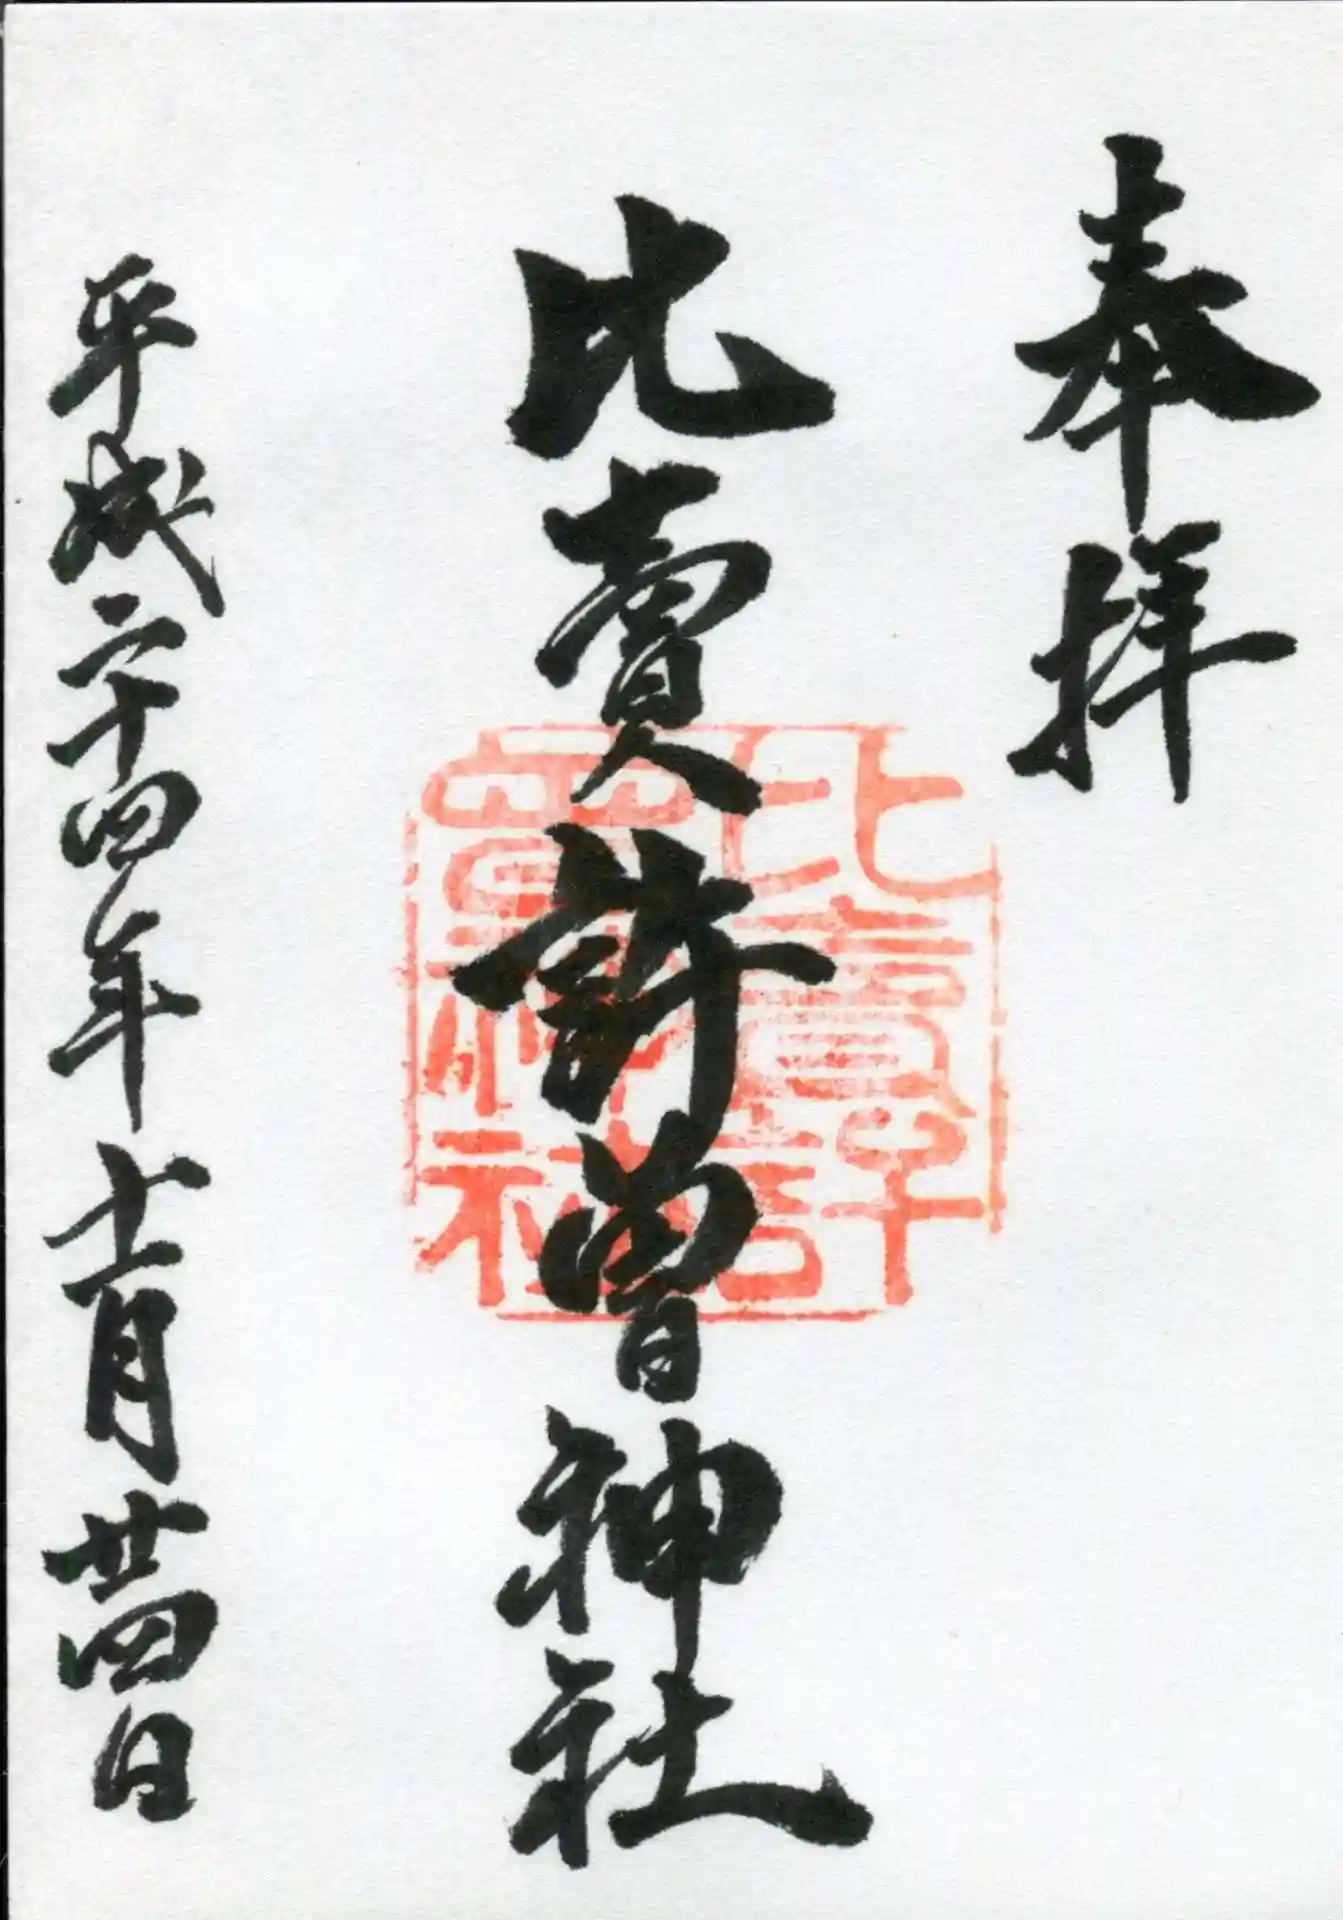 奉拝
比賣許曾神社
平成二十四年十一月廿四日
比賣許
曾神社